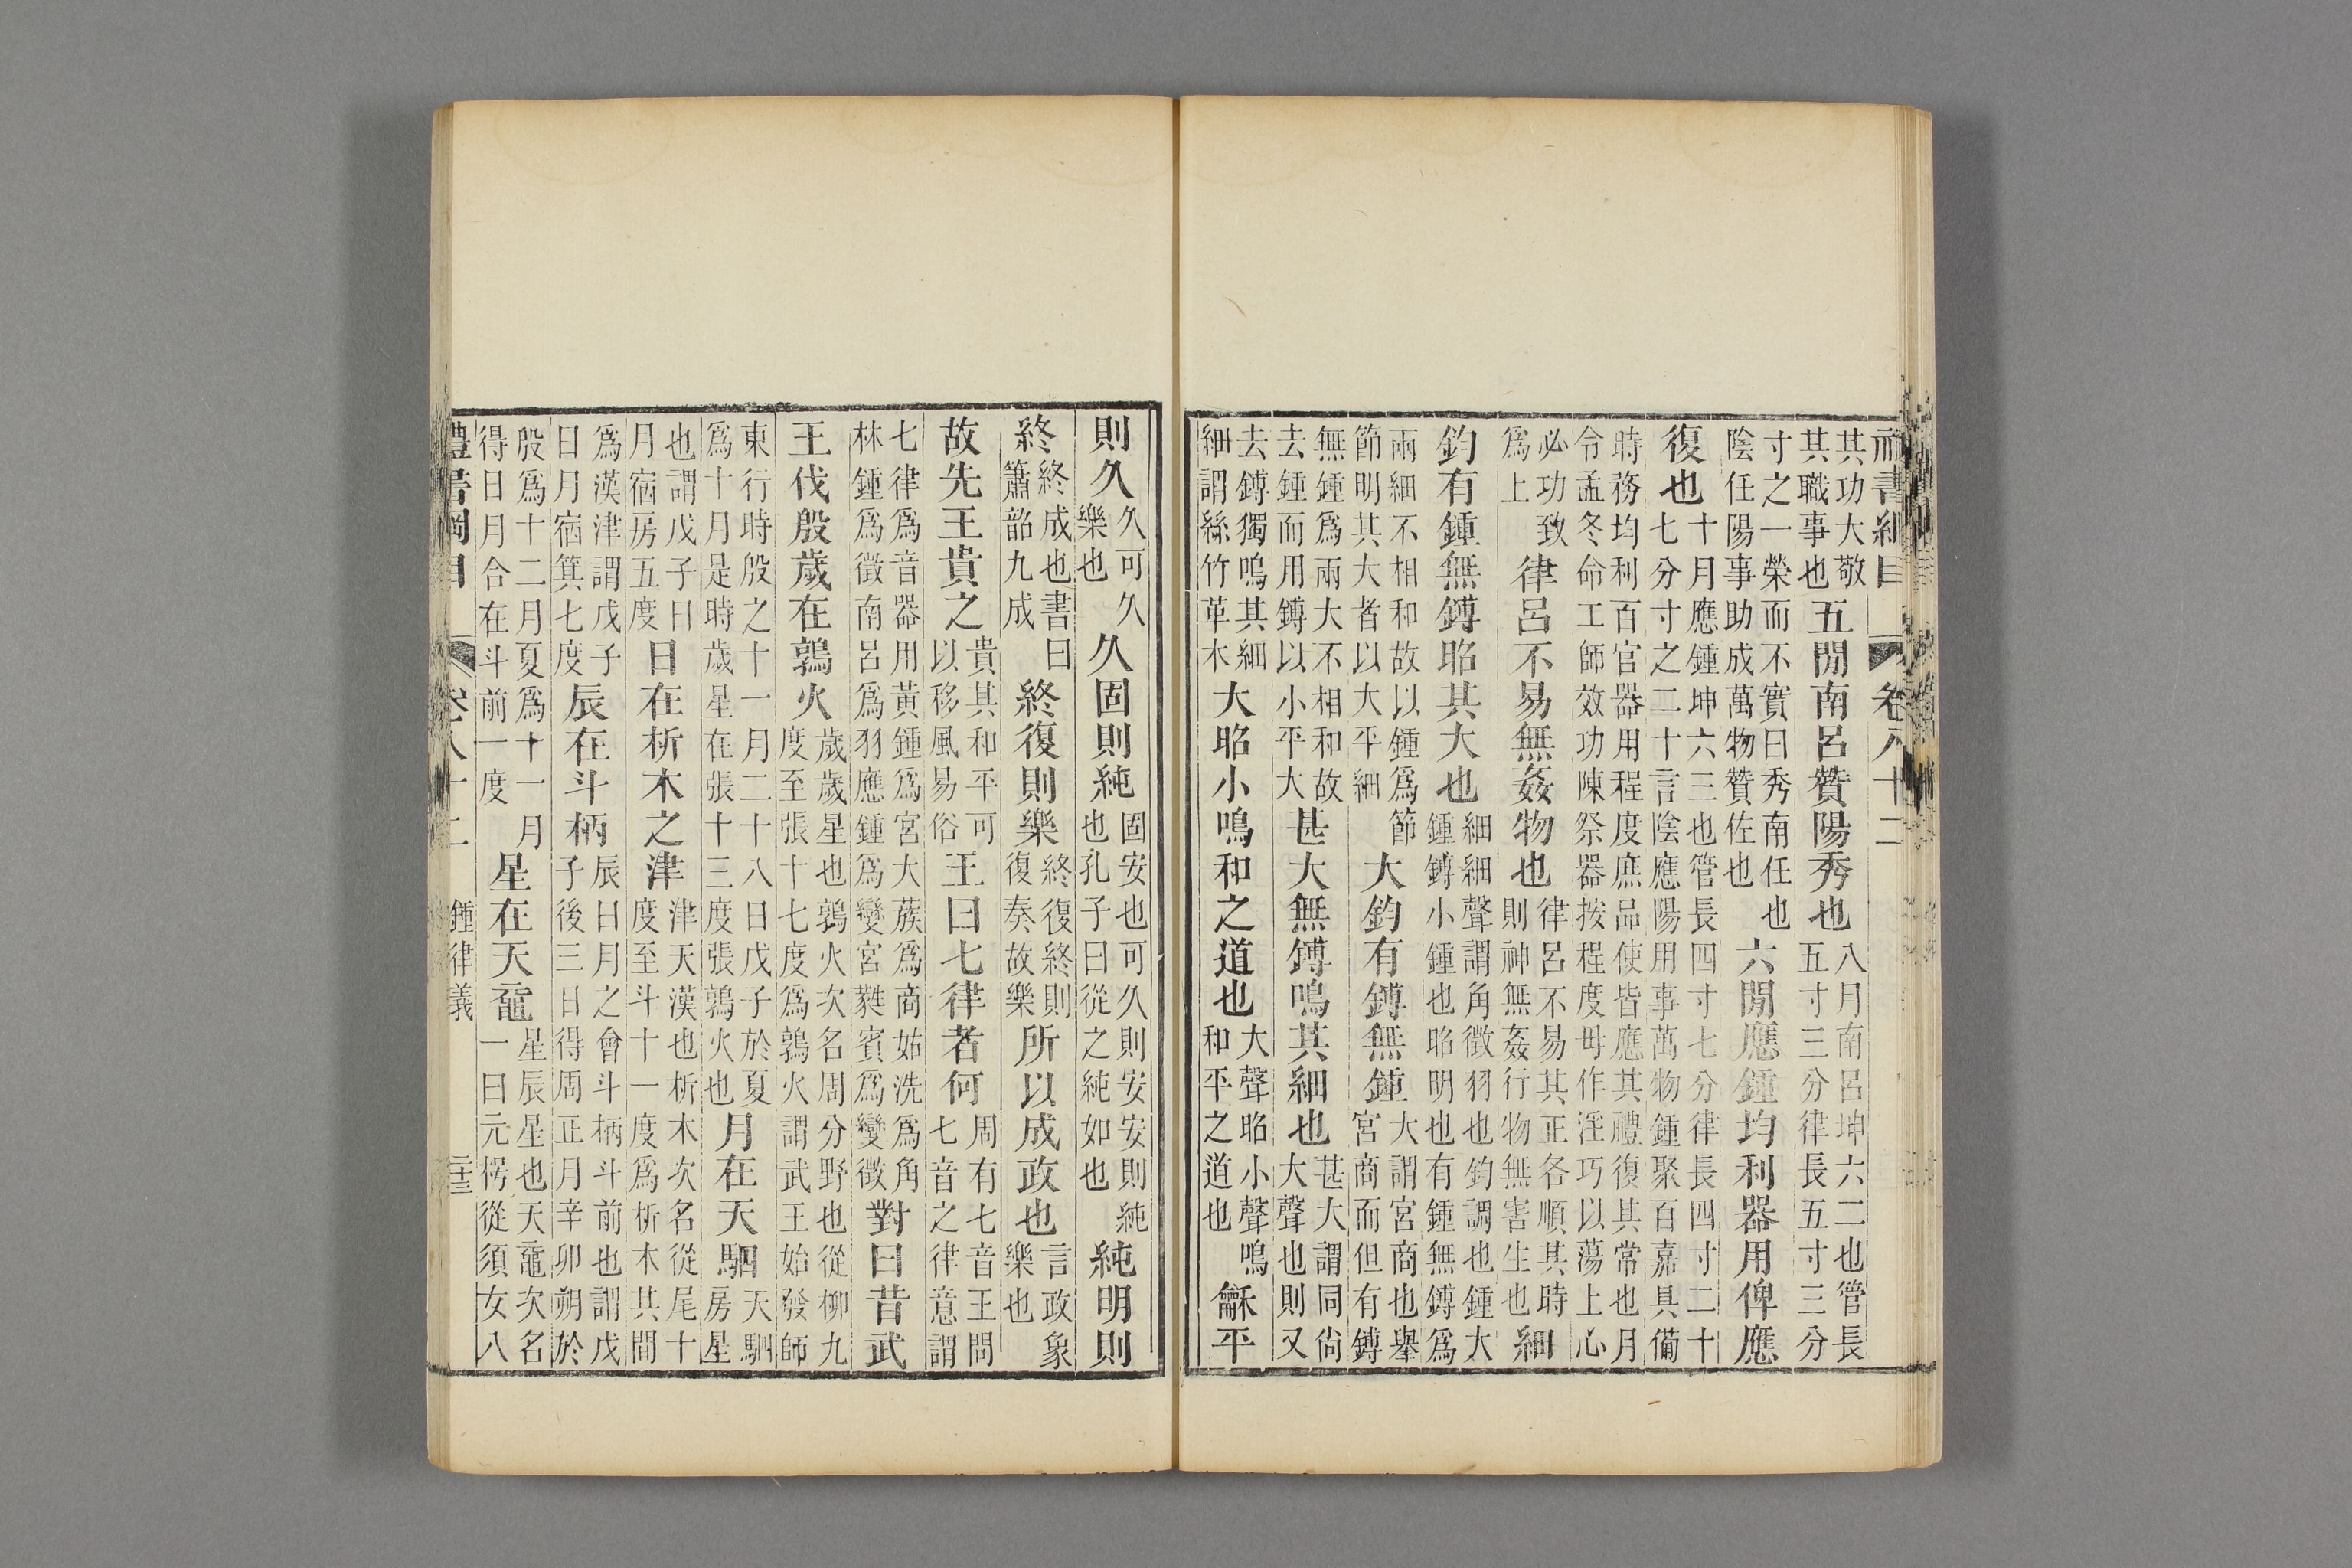 禮書綱目　卷八十二
其功大敬其職事也五閒南呂贊陽秀也八月南呂坤六二也管長五寸三分律長五寸三分
寸之一榮而不實曰秀南任也陰任陽事助成萬物贊佐也六閒應鍾均利器用俾應
復也十月應鍾坤六三也管長四寸七分律長四寸二十七分寸之二十言陰應陽用事萬物鍾聚百嘉具備
時務均利百官器用程度庶品使皆應其禮復其常也月令孟冬命工師效功陳祭器按程度毋作淫巧以蕩上心
必功致爲上律呂不易無姦物也律呂不易其正各順其時則神無姦行物無害生也細
鈞有鍾無鎛昭其大也細細聲謂角徵羽也鈞調也鍾大鍾鎛小鍾也昭明也有鍾無鎛爲
兩細不相和故以鍾爲節節明其大者以大平細大鈞有鎛無鍾大謂宮商也舉宮商而但有鎛
無鍾爲兩大不相和故去鍾而用鎛以小平大甚大無鎛鳴其細也甚大謂同尚大聲也則又
去鎛獨鳴其細細謂絲竹革木大昭小鳴和之道也大聲昭小聲鳴和平之道也龢平
則久久可久樂也久固則純固安也可久則安安則純也孔子曰從之純如也純明則
終終成也書曰簫韶九成終復則樂終復終則復奏故樂所以成政也言政象樂也
故先王貴之貴其和平可以移風易俗王曰七律者何周有七音王問七音之律意謂
七律爲音器用黃鍾爲宮大蔟爲商姑洗爲角林鍾爲徵南呂爲羽應鍾爲變宮蕤賓爲變徵對曰昔武
王伐殷歲在鶉火歲歲星也鶉火次名周分野也從柳九度至張十七度爲鶉火謂武王始發師
東行時殷之十一月二十八日戊子於夏爲十月是時歲星在張十三度張鶉火也月在天駟天駟房星
也謂戊子日月宿房五度日在析木之津津天漢也析木次名從尾十度至斗十一度爲析木其間
爲漢津謂戊子日月宿箕七度辰在斗柄辰日月之會斗柄斗前也謂戊子後三日得周正月辛卯朔於
殷爲十二月夏爲十一月得日月合在斗前一度星在天黿星辰星也天黿次名一曰元枵從須女八
禮書綱目　卷八十二　鍾律義　二十三